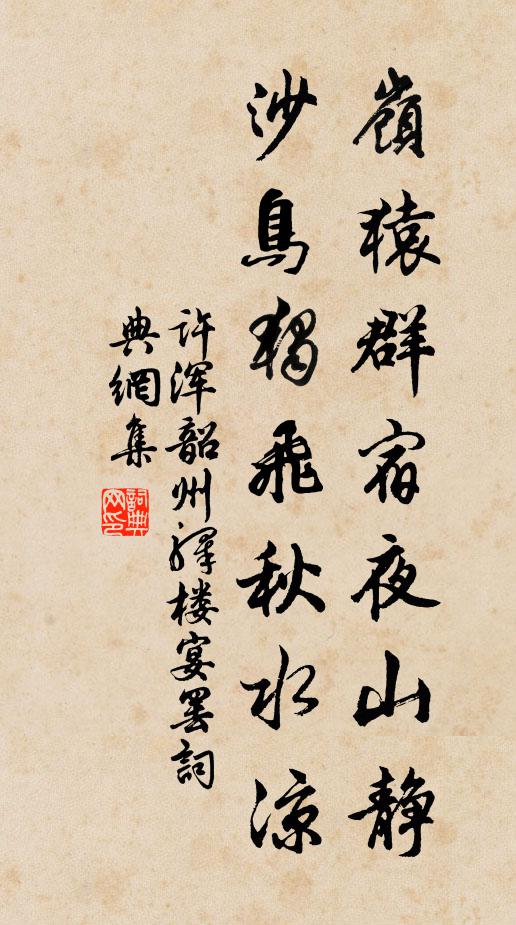 嶺猿群宿夜山静
沙鳥獨飛秋水涼
许渾韶州驛楼宴罢詞
典網集
詞典网印